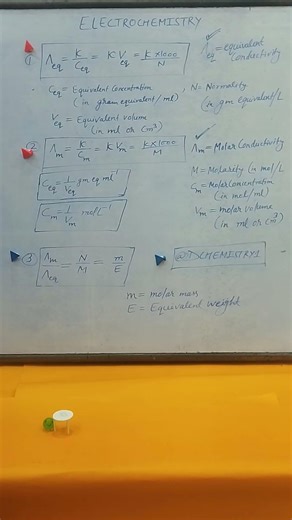 ELECTROCHEMISTRY
① Λeq = K/Ceq = K Veq = K×1000/N
Λeq = equivalent Conductivity
Ceq = Equivalent Concentration (in gram equivalent/ml)
N = Normality (in gm equivalent/L
Veq = Equivalent volume (in ml or Cm³)
② Λm = K/Cm = K Vm = K×1000/M
Λm = Molar Conductivity
M = Molarity (in mol/L
Ceq = 1/Veq gm eq ml⁻¹
Cm = Molar Concentration (in mol/ml)
Cm = 1/Vm mol L⁻¹
Vm = molar volume (in ml or Cm³)
③ Λm/Λeq = N/M = m/E
m = molar mass
E = Equivalent weight